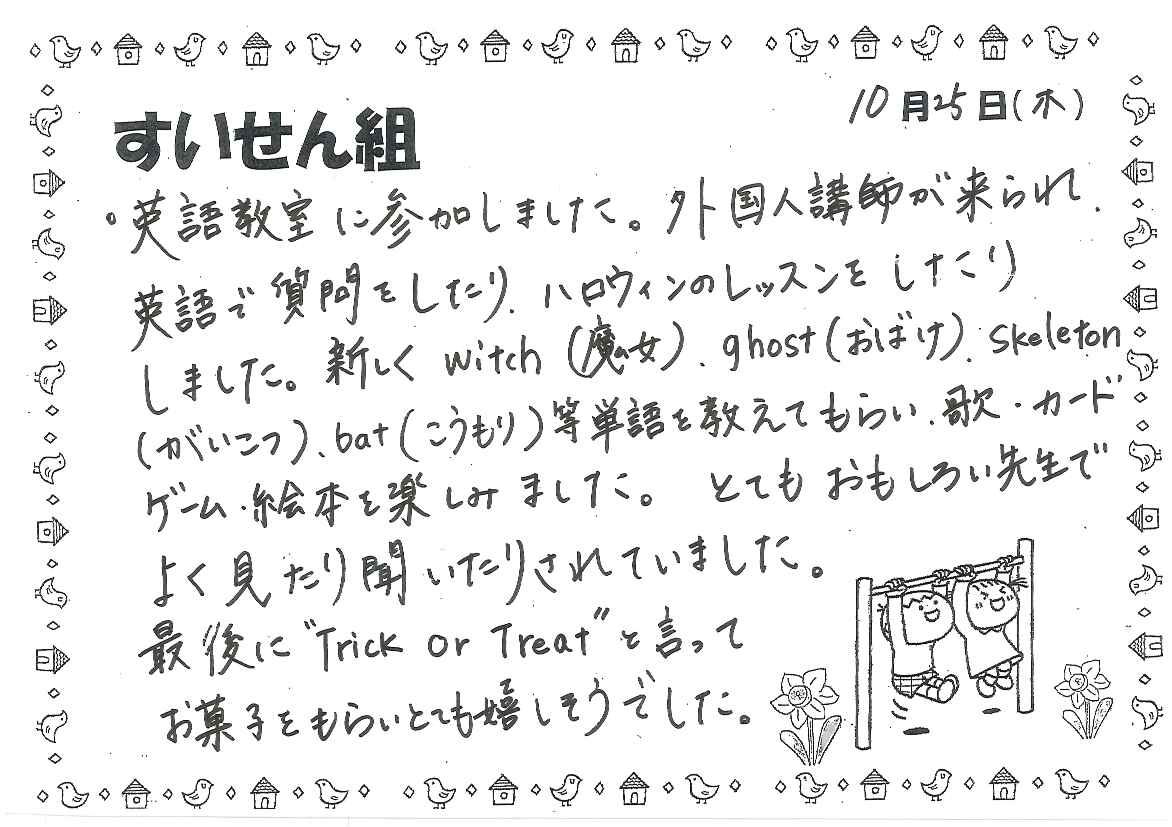 10月25日(木)
すいせん組
。英語教室に参加しました。外国人講師が来られ、
英語で質問をしたり、ハロウィンのレッスンをしたり
しました。新しく witch (魔女)、ghost(おばけ)、skeleton
(がいこつ)、bat(こうもり)等単語を教えてもらい、歌・カード
ゲーム・絵本を楽しみました。とてもおもしろい先生で
よく見たり聞いたりされていました。
最後に"Trick or Treat"と言って
お菓子をもらいとても嬉しそうでした。